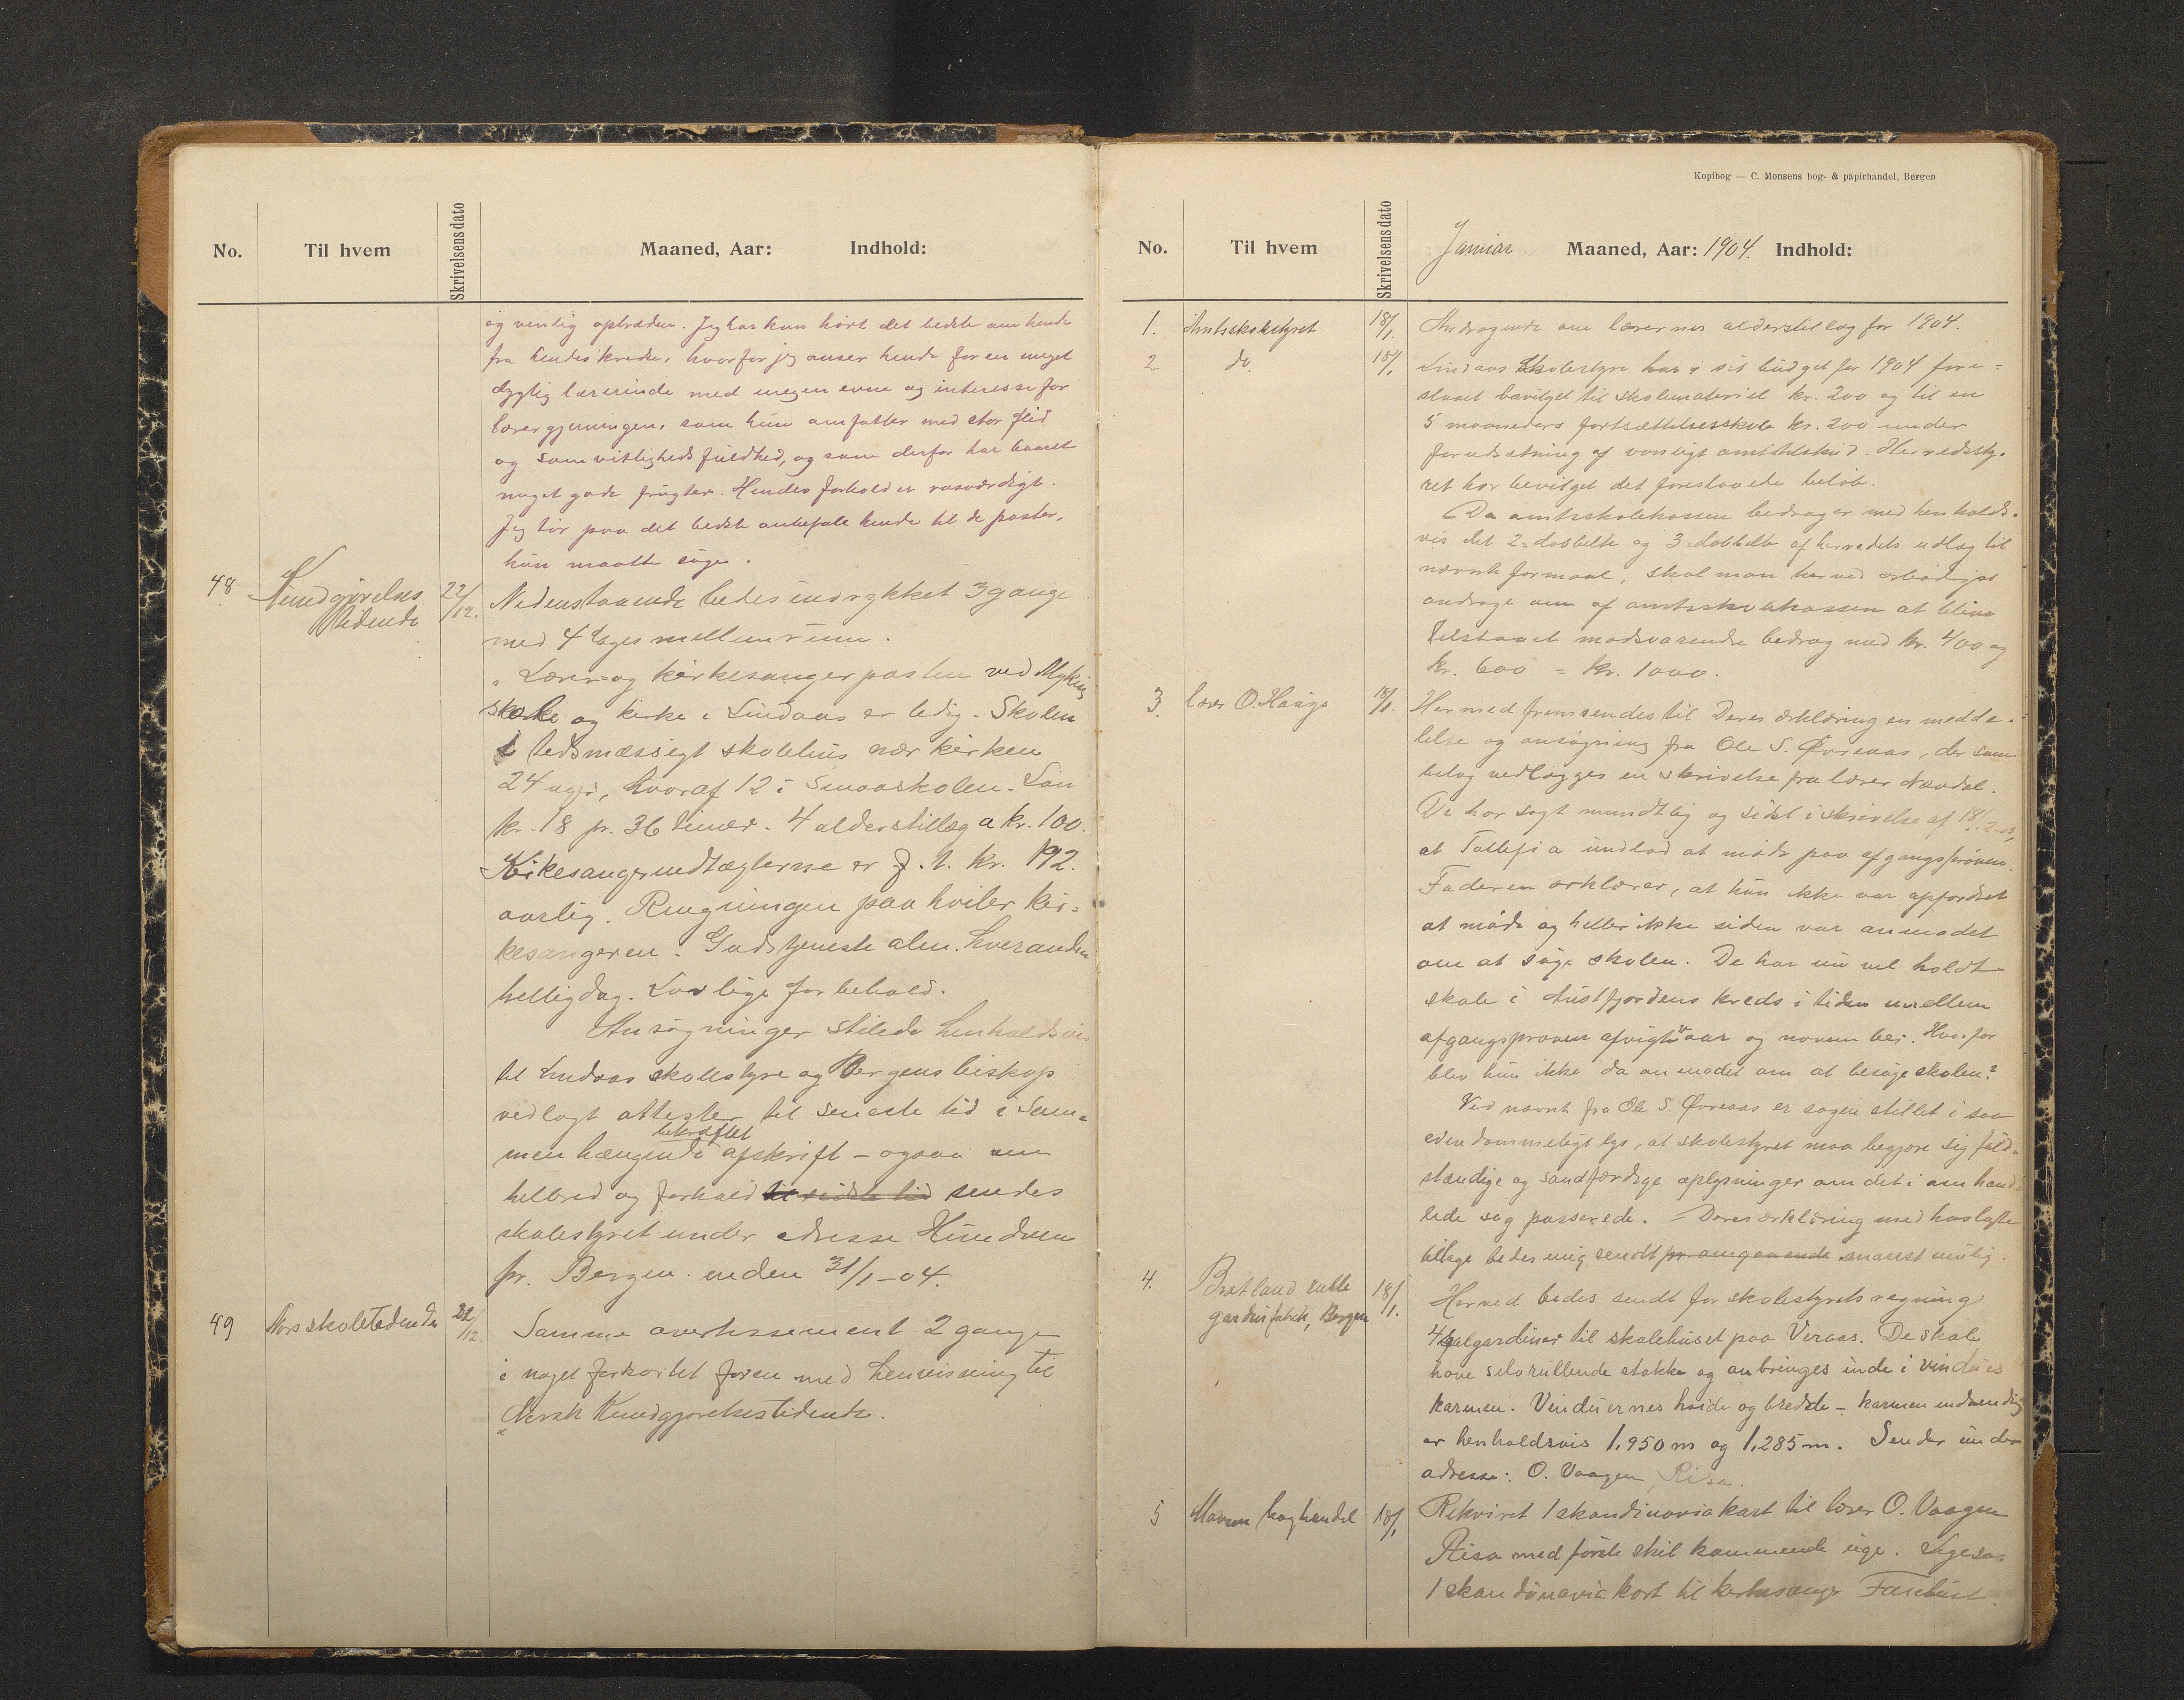 No. Til hvem Skrivelsens dato Maaned, Aar: Indhold:
og venlig optræden. Jeg har kun hørt det bedste om hende
fra hendes kredse, hvorfor jeg anser hende for en meget
dygtig lærerinde med megen evne og interesse for
lærergjerningen, som hun omfatter med stor flid
og samvittighedsfuldhed, og som derfor har baaret
meget gode frugter. Hendes forhold er rosværdigt.
Jeg tør paa det bedste anbefale hende til de poster,
hun maatte søge.
48 Kundgjørelses tidende 22/12. Nedenstaaende bedes indrykket 3 gange
med 4 dages mellemrum.
„Lærer- og kirkesangerposten ved Myking
skole og kirke i Lindaas er ledig. Skolen
tidsmæssigt skolehus nær kirken
24 uger, hvoraf 12 i Smaaskolen. Løn
kr. 18 pr. 36 timer. 4 alderstillæg a kr. 100.
Kirkesangerindtægterne er f. t. kr. 192.
aarlig. Ringningen paahviler kir=
kesangeren. Gudstjeneste alm. hveranden
helligdag. Lovlige forbehold.
Ansøgninger stilede henholdsvis
til Lindaas skolestyre og Bergens biskop
vedlagt attester til seneste tid i Sam=
menhængende bekræftet afskrift – ogsaa om
helbred og forhold til sidste tid sendes
skolestyret under adresse Hundven
pr. Bergen inden 31/1–04.
49 Nors skoletidende 22/12. Samme avertissement 2 gange
i noget forkortet form med henvisning til
„Norsk Kundgjørelsestidende.
Kopibog — C. Monsens bog- & papirhandel, Bergen
No. Til hvem Skrivelsens dato Januar Maaned, Aar: 1904. Indhold:
1. Amtsskolestyret 18/1. Andragende om lærernes alderstillæg for 1904.
2 do. 18/1. Lindaas Skolestyre har i sit budget for 1904 fore=
slaaet bevilget til skolemateriel kr. 200 og til en
5 maaneders fortsættelsesskole kr. 200 under
forudsætning af vanligt amtstilskud. Herredssty=
ret har bevilget det foreslaaede beløb.
Da amtsskolekassen bedrager med henholds=
vis det 2-dobbelte og 3-dobbelte af herredets udlæg til
nævnte formaal, skal man herved ærbødigst
andrage om af amtsskolekassen at blive
tilstaaet modsvarende bedrag med kr. 400 og
kr. 600 = kr. 1000.
3. lærer O. Hauge 18/1. Hermed fremsendes til Deres erklæring en medde=
lelse og ansøgning fra Ole S. Øvreaas, der som
bilag vedlægges en skrivelse fra lærer Nævdal.
De har sagt mundtlig og sidst i skrivelse af 18/12–03,
at Tollefia undlod at møde paa afgangsprøven.
Faderen erklærer, at hun ikke var opfordret
at møde og heller ikke siden var anmodet
om at søge skolen. De har nu vel holdt
skole i Austfjordens kreds i tiden mellem
afgangsprøven afvigte aar og november. Hvorfor
blev hun ikke da anmodet om at besøge skolen?
Ved nævnte fra Ole S. Øvreaas er sagen stillet i saa
eiendommeligt lys, at skolestyret maa begjære sig fuld=
stændige og sandfærdige oplysninger om det i omhand=
lede sag passerede. – Deres erklæring med hoslagte
bilage bedes mig sendt pr. omgaaende snarest mulig.
4. Bratland rulle gardinfabrik, Bergen 18/1. Herved bedes sendt for skolestyrets regning
4 galgardiner til skolehuset paa Veraas. De skal
have selvrullende stokke og anbringes inde i vindues
karmen. Vinduernes høide og bredde – karmen indvendig
er henholdsvis 1,950 m og 1,285 m. Sendes under
adresse: O. Vaagen, Risa.
5 Monsen boghandel 18/1. Rekviret 1 skandinaviakart til lærer O. Vaagen
Risa med første skib kommende uge. Ligesaa
1 skandinaviakort til kirkesanger Fanebust.